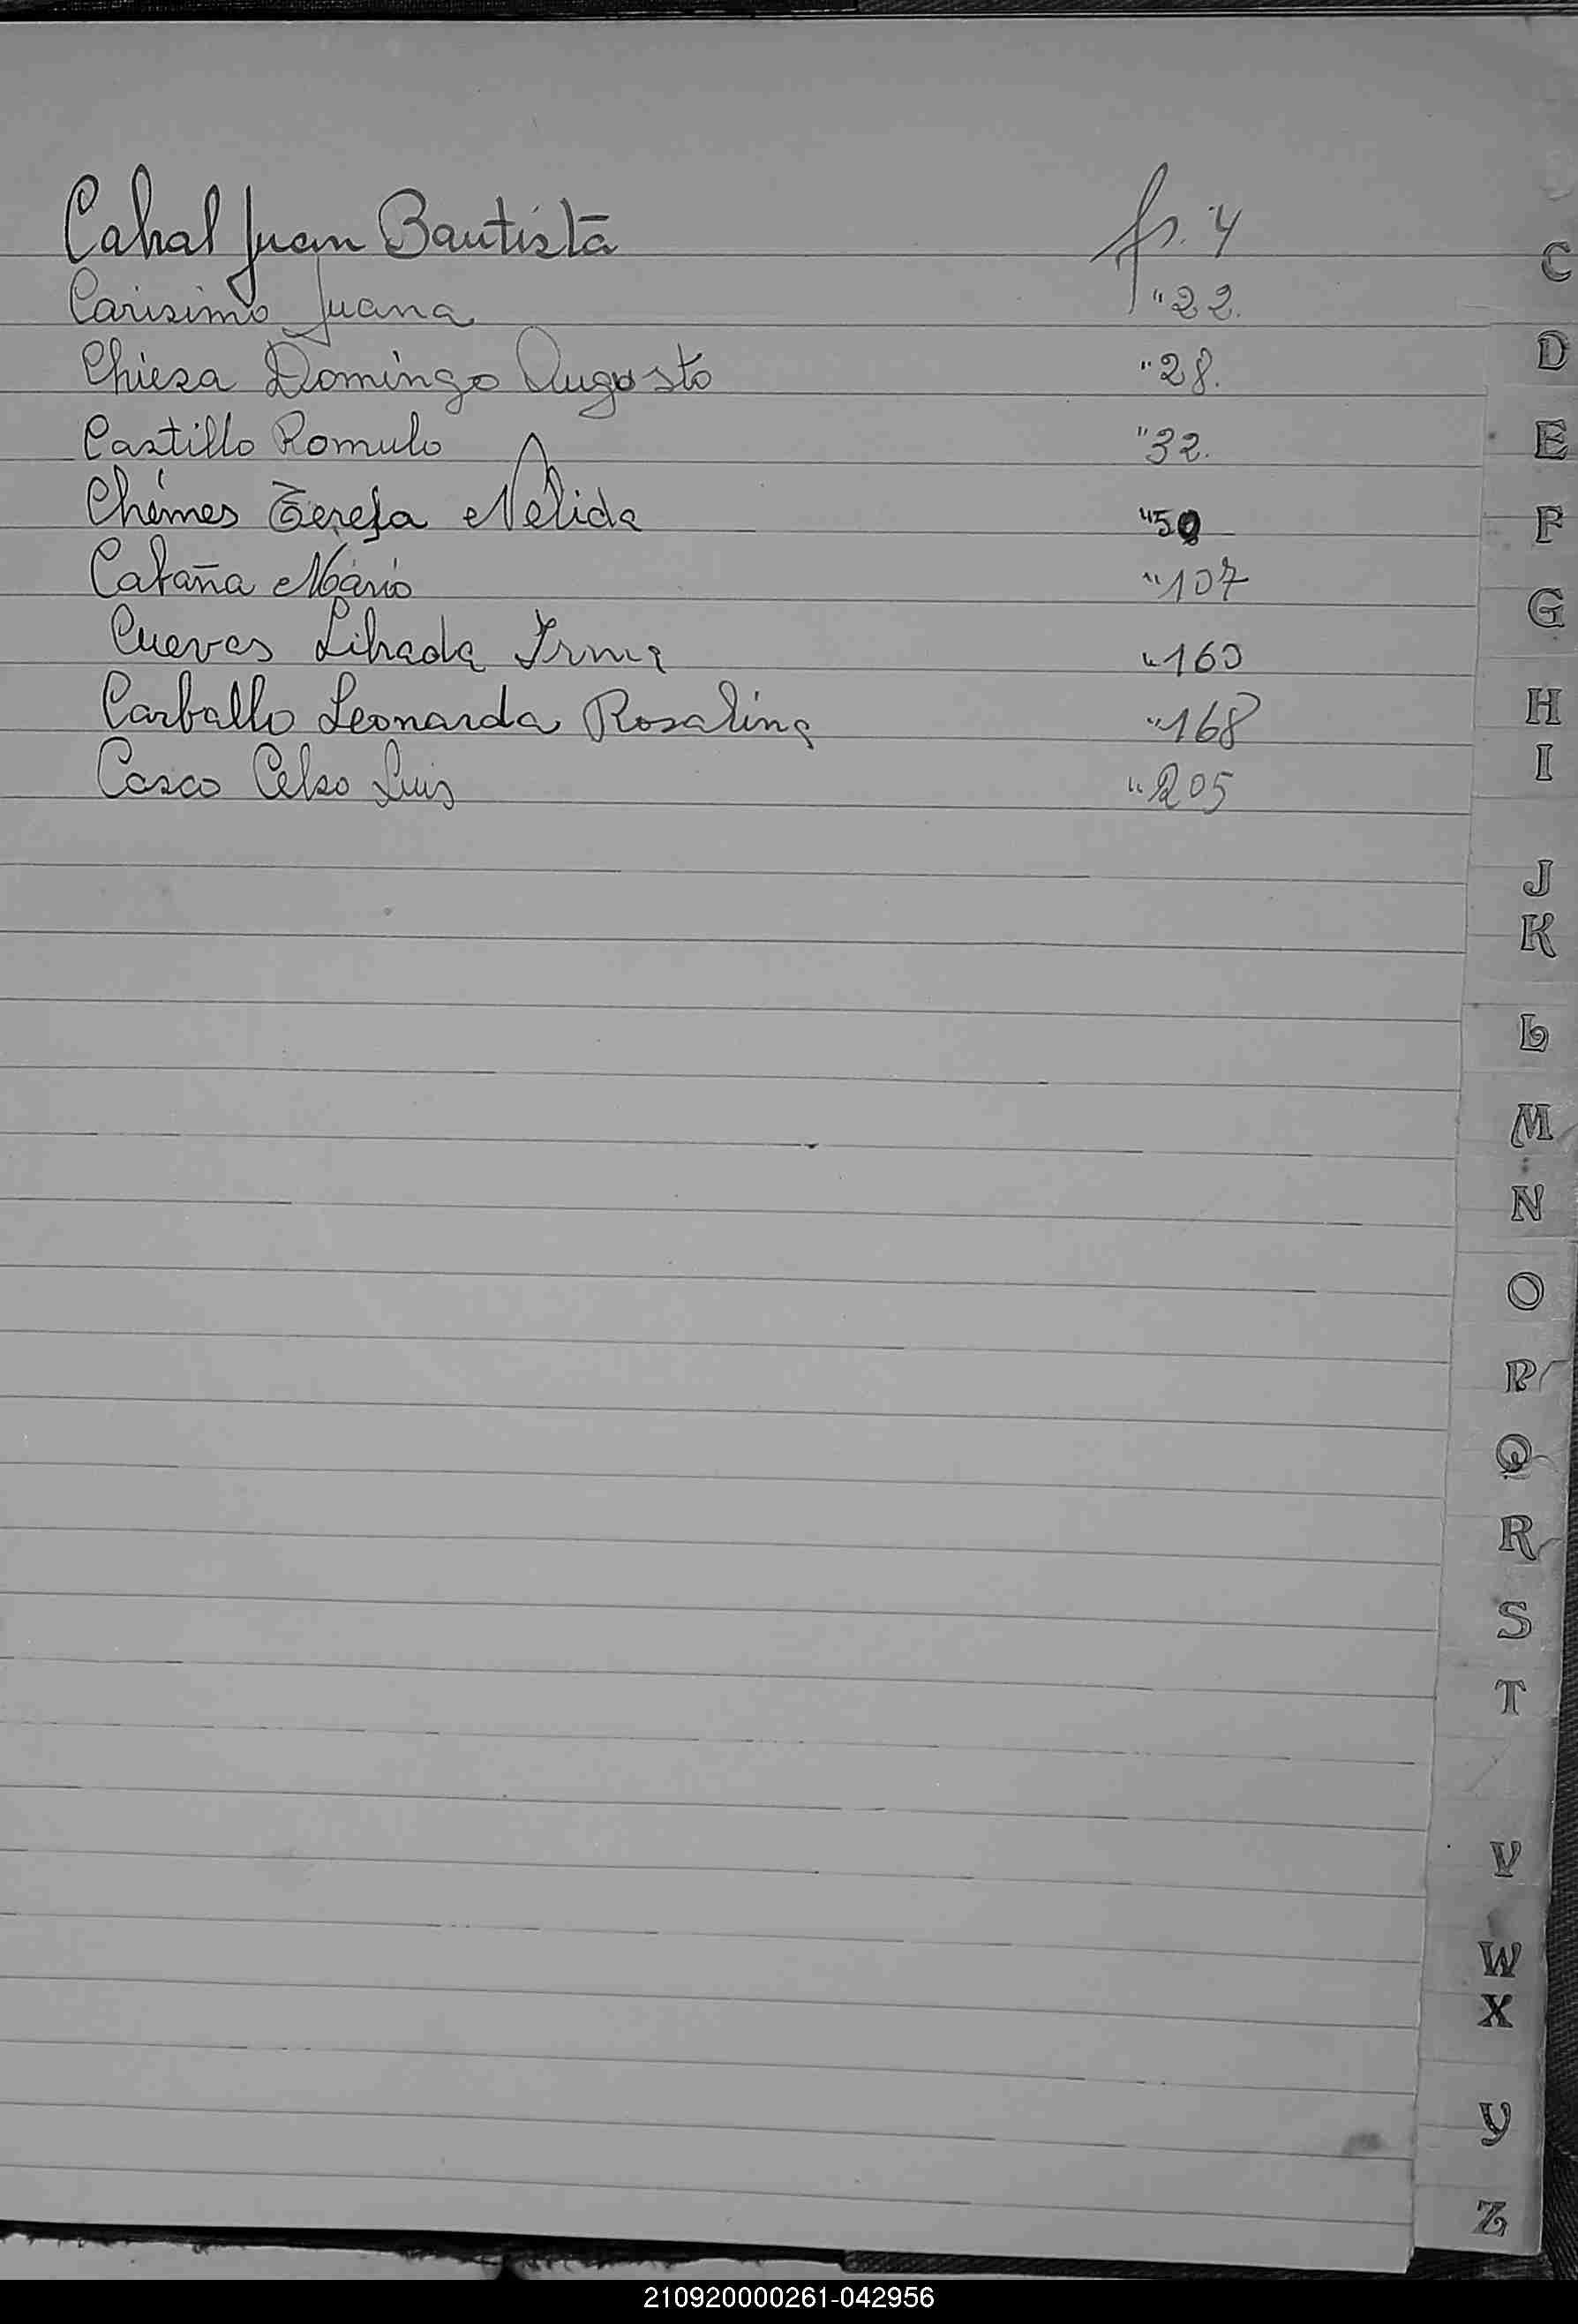 Cabral Juan Bautista fs. 4
Carisimo Juana "22.
Chiesa Domingo Augosto "28.
Castillo Romulo "32.
Chémes Teresa Nélida "50
Cataña Mário "107
Cuevas Librada Irma "160
Carballo Leonarda Rosalina "168
Casco Celso Luis "205
C
D
E
F
G
H
I
J
K
L
M
N
O
P
Q
R
S
T
V
W
X
Y
Z
210920000261-042956